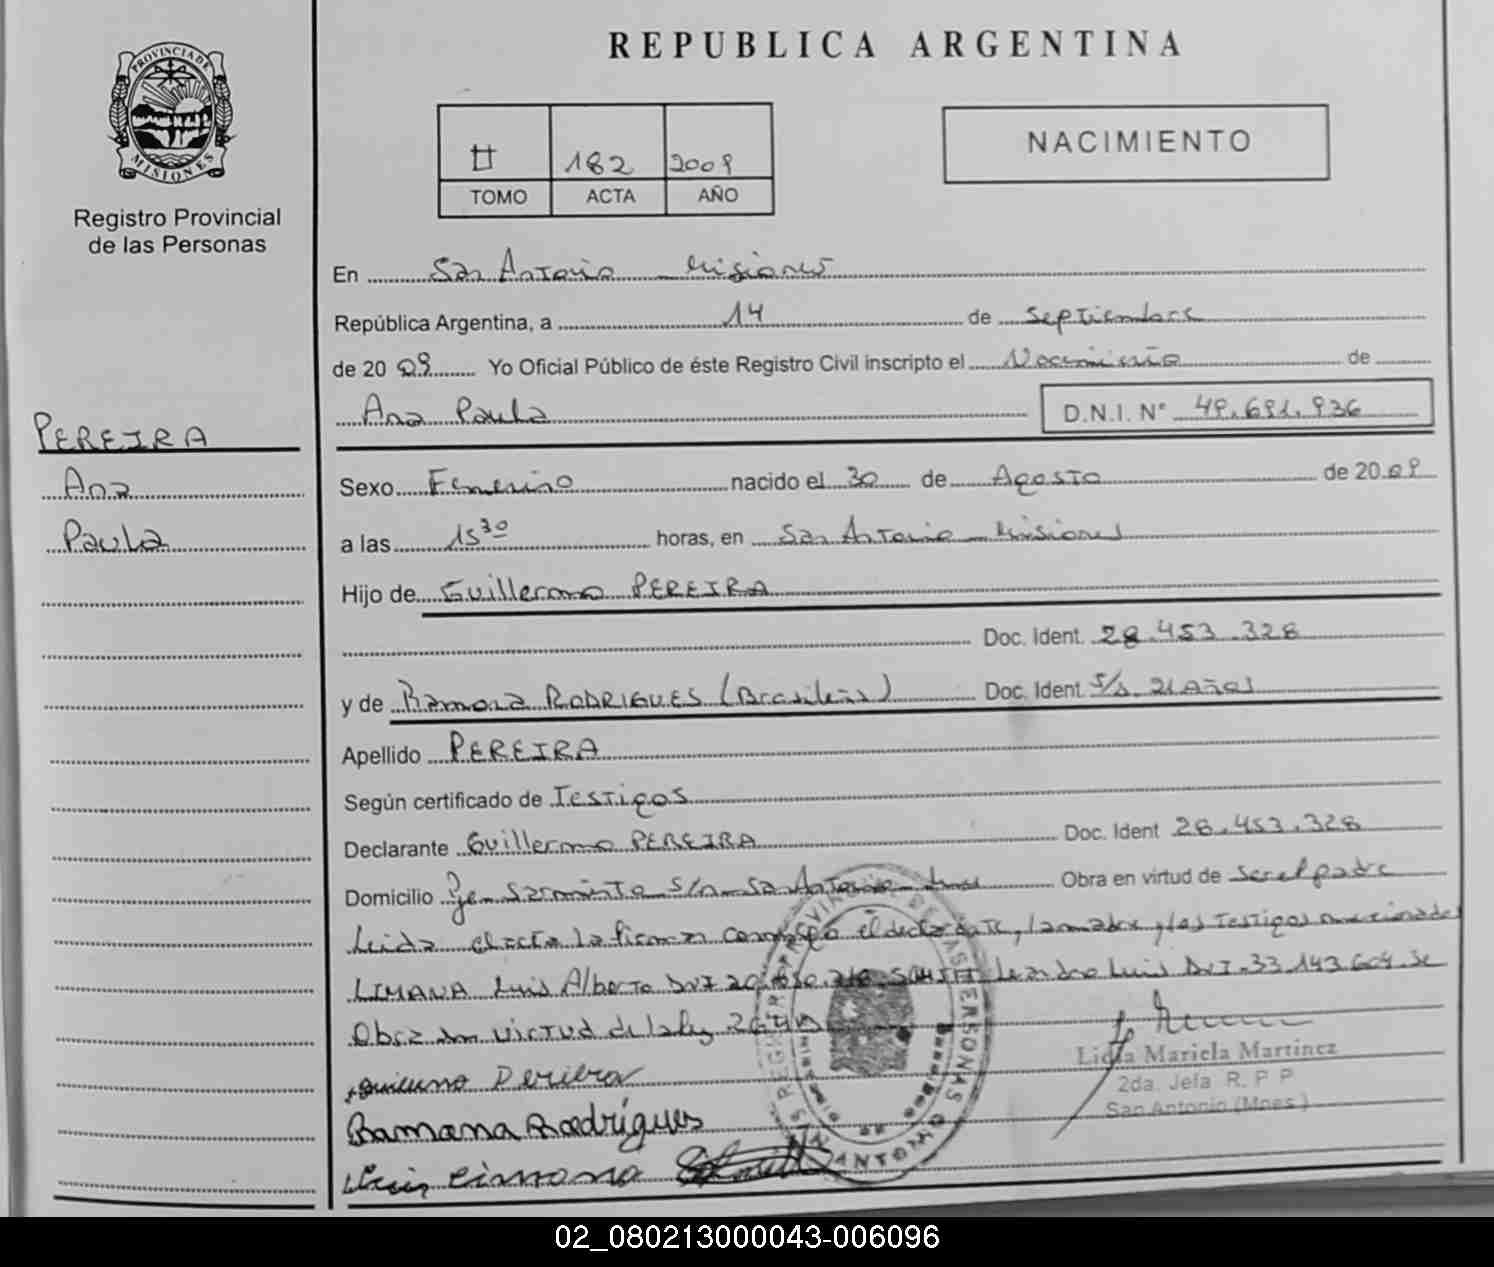 PROVINCIA DE
MISIONES
Registro Provincial
de las Personas
REPUBLICA ARGENTINA
II 182 2009
TOMO ACTA AÑO
NACIMIENTO
En San Antonio - Misiones
República Argentina, a 14 de Septiembre
de 20 09 Yo Oficial Público de éste Registro Civil inscripto el Nacimiento de
Ana Paula D.N.I. N° 49.691.936
PEREIRA
Ana
Paula
Sexo Femenino nacido el 30 de Agosto de 20 09
a las 15 30 horas, en San Antonio - Misiones
Hijo de Guillermo PEREIRA
Doc. Ident. 28.453.328
y de Ramona RODRIGUES (Brasileña) Doc. Ident. S/D. 21 Años
Apellido PEREIRA
Según certificado de Testigos
Declarante Guillermo PEREIRA Doc. Ident 28.453.328
Domicilio Pje Sarmiento S/n - San Antonio - Obra en virtud de ser el padre
Leida el acta la firman conmigo el declarante, la madre y los Testigos mencionados
LIMANA Luis Alberto DNI Leandro Luis DNI 33.143.604. Se
Obra en virtud de la ley
Ramona Rodrigues
Luis Limana
Lidia Mariela Martinez
2da. Jefa R. P P
San Antonio (Mnes.)
02_080213000043-006096